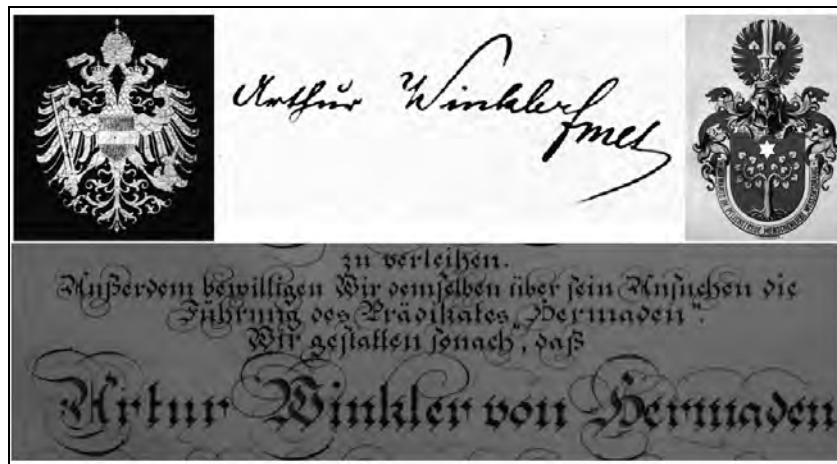 Arthur Winkler
zu verleihen.
Außerdem bewilligen Wir demselben über sein Ansuchen die
Führung des Prädikates „Hermaden“.
Wir gestatten sonach, daß
Artur Winkler von Hermaden